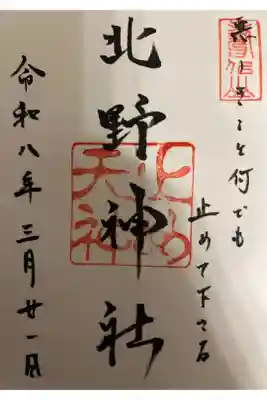 悪しきこと何でも
止めて下さる
止め天神
北野神社
令和八年三月廿一日